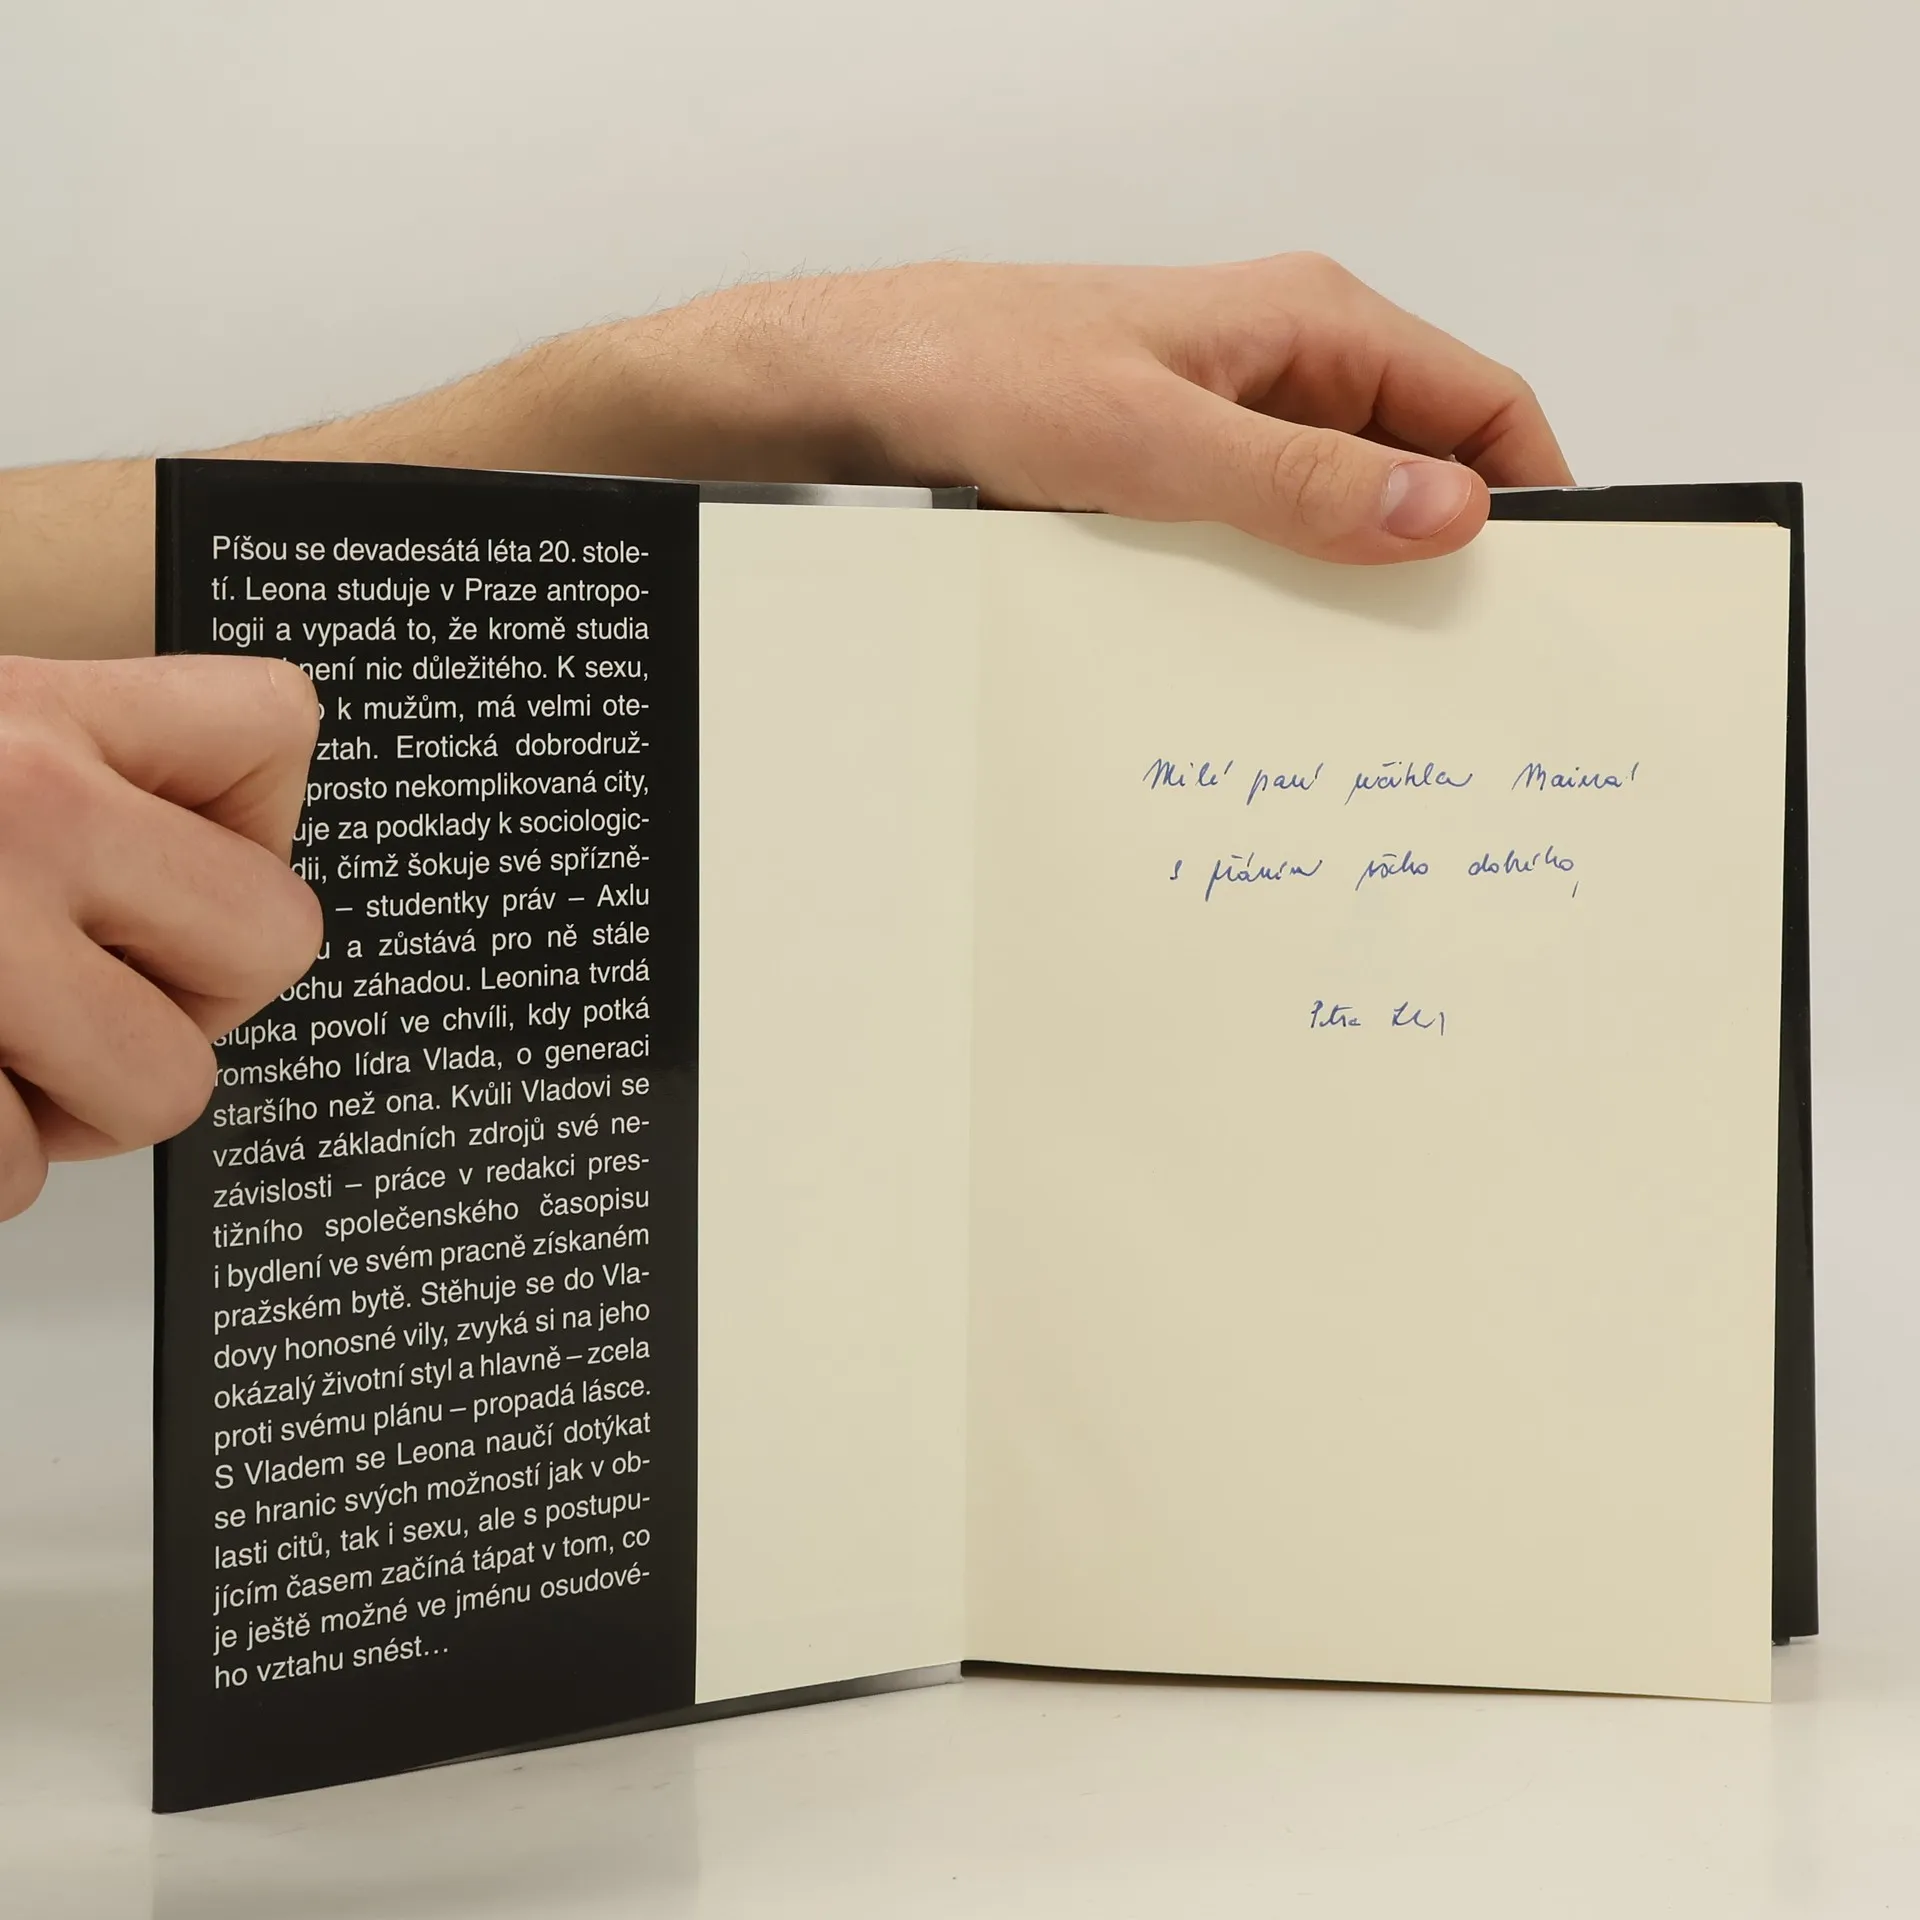 Píšou se devadesátá léta 20. stole-
tí. Leona studuje v Praze antropo-
logii a vypadá to, že kromě studia
není nic důležitého. K sexu,
k mužům, má velmi ote-
ztah. Erotická dobrodruž-
prosto nekomplikovaná city,
uje za podklady k sociologic-
dii, čímž šokuje své spřízně-
– studentky práv – Axlu
u a zůstává pro ně stále
ochu záhadou. Leonina tvrdá
slupka povolí ve chvíli, kdy potká
romského lídra Vlada, o generaci
staršího než ona. Kvůli Vladovi se
vzdává základních zdrojů své ne-
závislosti – práce v redakci pres-
tižního společenského časopisu
i bydlení ve svém pracně získaném
pražském bytě. Stěhuje se do Vla-
dovy honosné vily, zvyká si na jeho
okázalý životní styl a hlavně – zcela
proti svému plánu – propadá lásce.
S Vladem se Leona naučí dotýkat
se hranic svých možností jak v ob-
lasti citů, tak i sexu, ale s postupu-
jícím časem začíná tápat v tom, co
je ještě možné ve jménu osudové-
ho vztahu snést...
Milé paní
s přáním všeho dobrého,
Petra